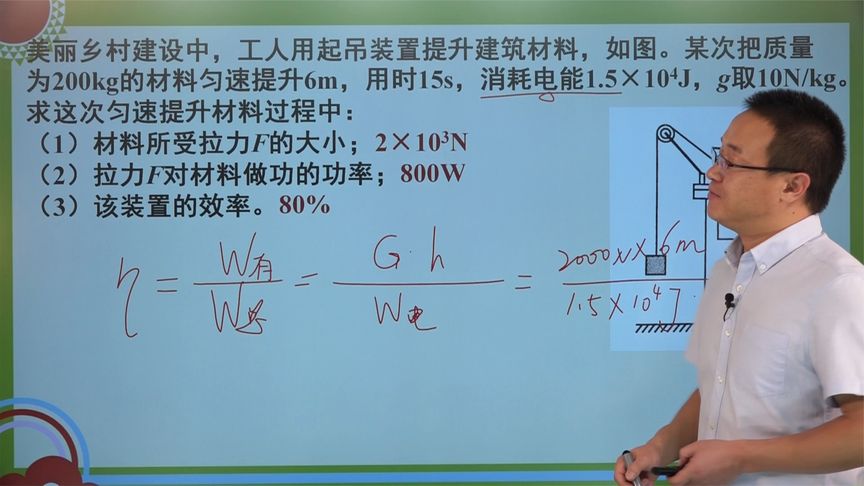 美丽乡村建设中，工人用起吊装置提升建筑材料，如图。某次把质量
为200kg的材料匀速提升6m，用时15s，消耗电能1.5×10⁴J，g取10N/kg。
求这次匀速提升材料过程中：
（1）材料所受拉力F的大小；2×10³N
（2）拉力F对材料做功的功率；800W
（3）该装置的效率。80%
η = W有/W总 = G·h/W电 = 2000N×6m/1.5×10⁴J